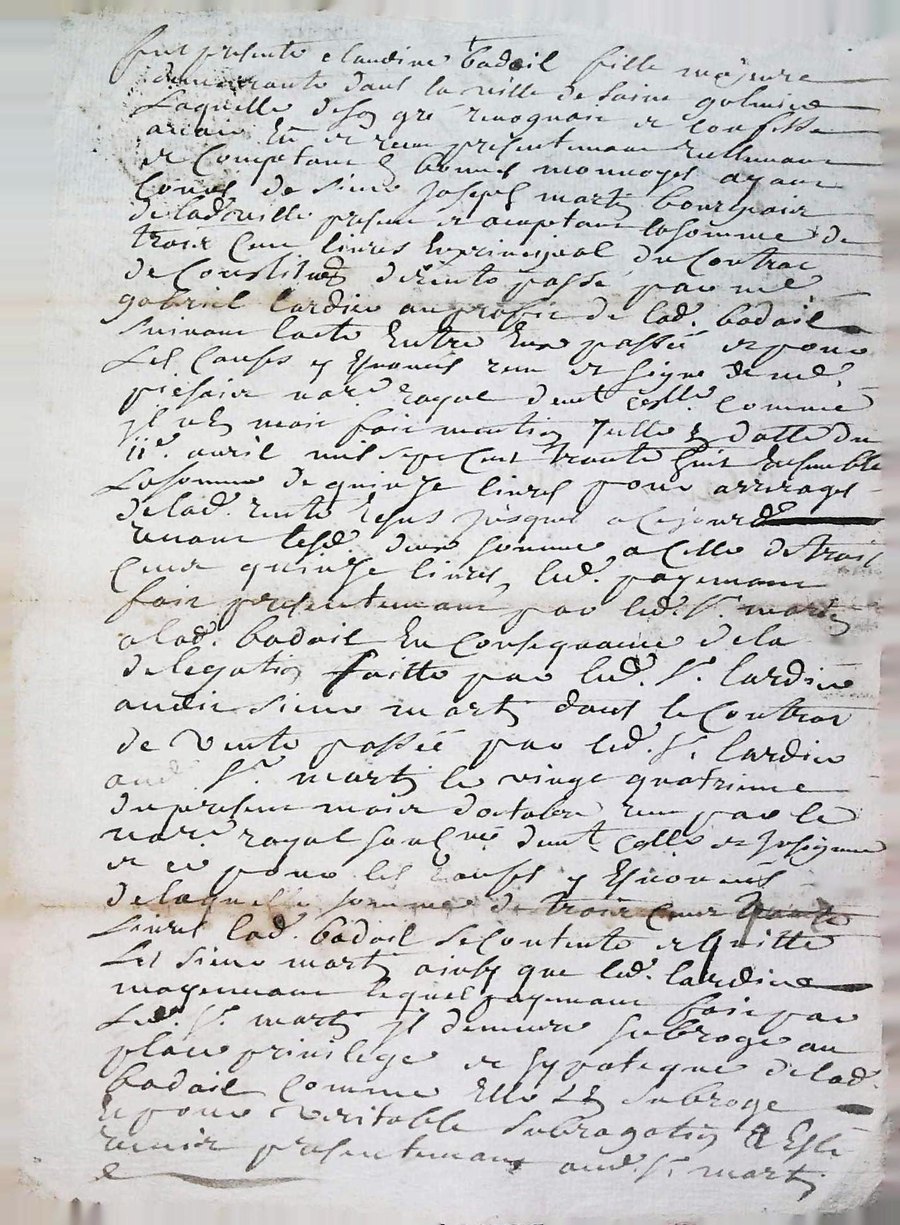 fut presente claudine badoil fille majeure
demeurante dans la ville de saint golmier
Laquelle de son gré recognoit et confesse
avoir eu et receu presentement reellement
et comptant en bonnes monnoyes ayant
cours de sieur Joseph martin bourgeois
de lad. ville present et acceptant la somme de
trois cent livres en principal du contrat
de constitu[on] de rente passé par me
gabriel lardier au profit de lad. badoil
suivant lacte entre eux passé et pour
Les causes y enoncés receu et signé de me
notre royal dud. celle comme
il en mois fait mention Julle en datte du
11e. avril mil sept cent trante huit Ensemble
La somme de quinze livres pour arrerages
de lad. rente echus jusques a cejourd
venant lesd. deux somme a celle de trois
cent quinze livres, led. payement
fait presentement par led. Sr. martin
a lad. badoil En consequance de la
delegation faitte par led. Sr. lardier
audit sieur martin dans le contrat
de vente passée par led. Sr. lardier
aud. Sr. martin le vingt quatrieme
du present mois doctobre receu par le
notre royal soubne dud. celle et soßigné
et ce pour les causes y Enoncés
de laquelle somme de trois cent
Livres lad. badoil se contente et quitte
Les sieur martin ainsy que led. lardier
moyennant lequel payement fait par
Led. Sr. martin jl demeure subrogé au
place privilege et hypoteque de lad.
badoil comme Elle Le subroge
Et pour veritable subrogation a Esté
remis presentement aud. Sr. martin